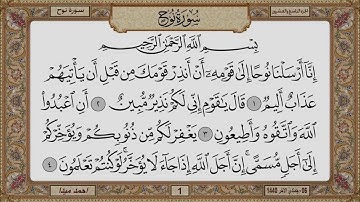 الجزء التاسع والعشرون
سورة نوح
سُورَةُ نُوحٍ
بِسْمِ اللَّهِ الرَّحْمَٰنِ الرَّحِيمِ
إِنَّا أَرْسَلْنَا نُوحًا إِلَىٰ قَوْمِهِ أَنْ أَنذِرْ قَوْمَكَ مِن قَبْلِ أَن يَأْتِيَهُمْ
عَذَابٌ أَلِيمٌ ١ قَالَ يَا قَوْمِ إِنِّي لَكُمْ نَذِيرٌ مُّبِينٌ ٢ أَنِ اعْبُدُوا
اللَّهَ وَاتَّقُوهُ وَأَطِيعُونِ ٣ يَغْفِرْ لَكُم مِّن ذُنُوبِكُمْ وَيُؤَخِّرْكُمْ
إِلَىٰ أَجَلٍ مُّسَمًّى إِنَّ أَجَلَ اللَّهِ إِذَا جَاءَ لَا يُؤَخَّرُ لَوْ كُنتُمْ تَعْلَمُونَ ٤
1440
1